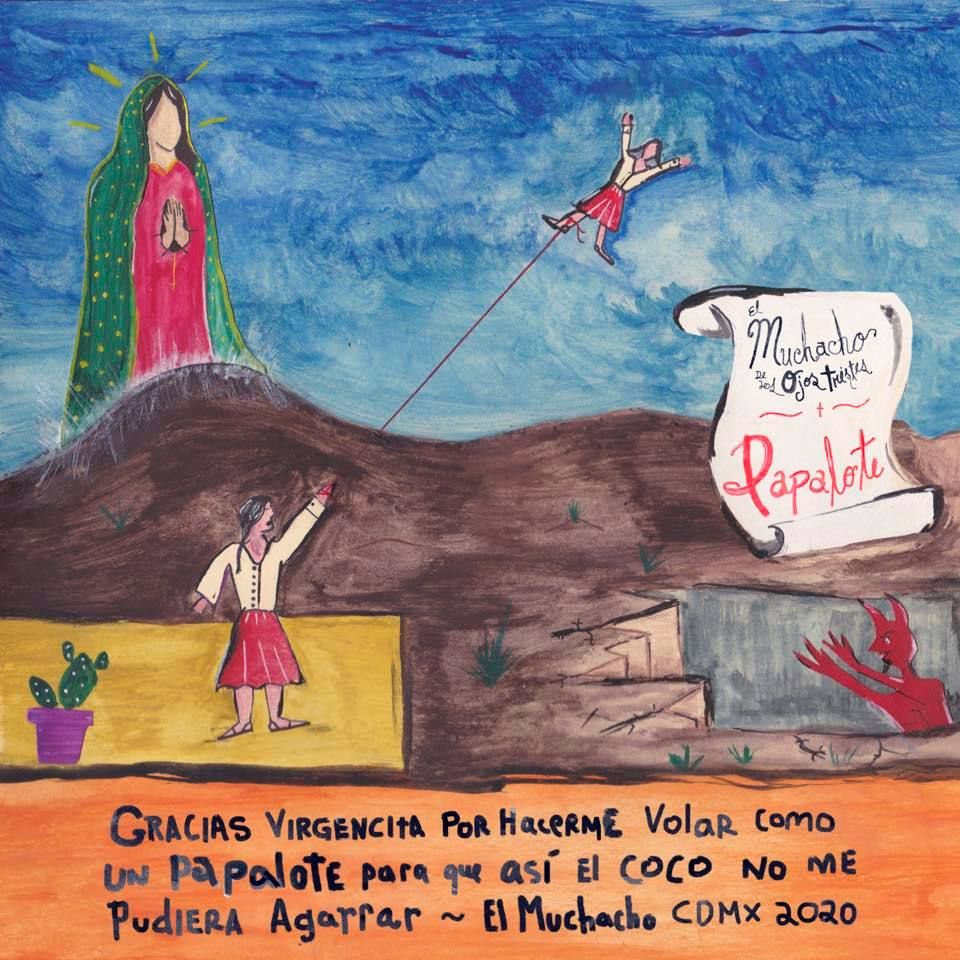 El
Muchacho
De los Ojos tristes
Papalote
GRACIAS VIRGENCITA POR HACERME VOLAR COMO
UN PAPALOTE para que así El COCO NO ME
PUDIERA Agarrar ~ El Muchacho CDMX 2020